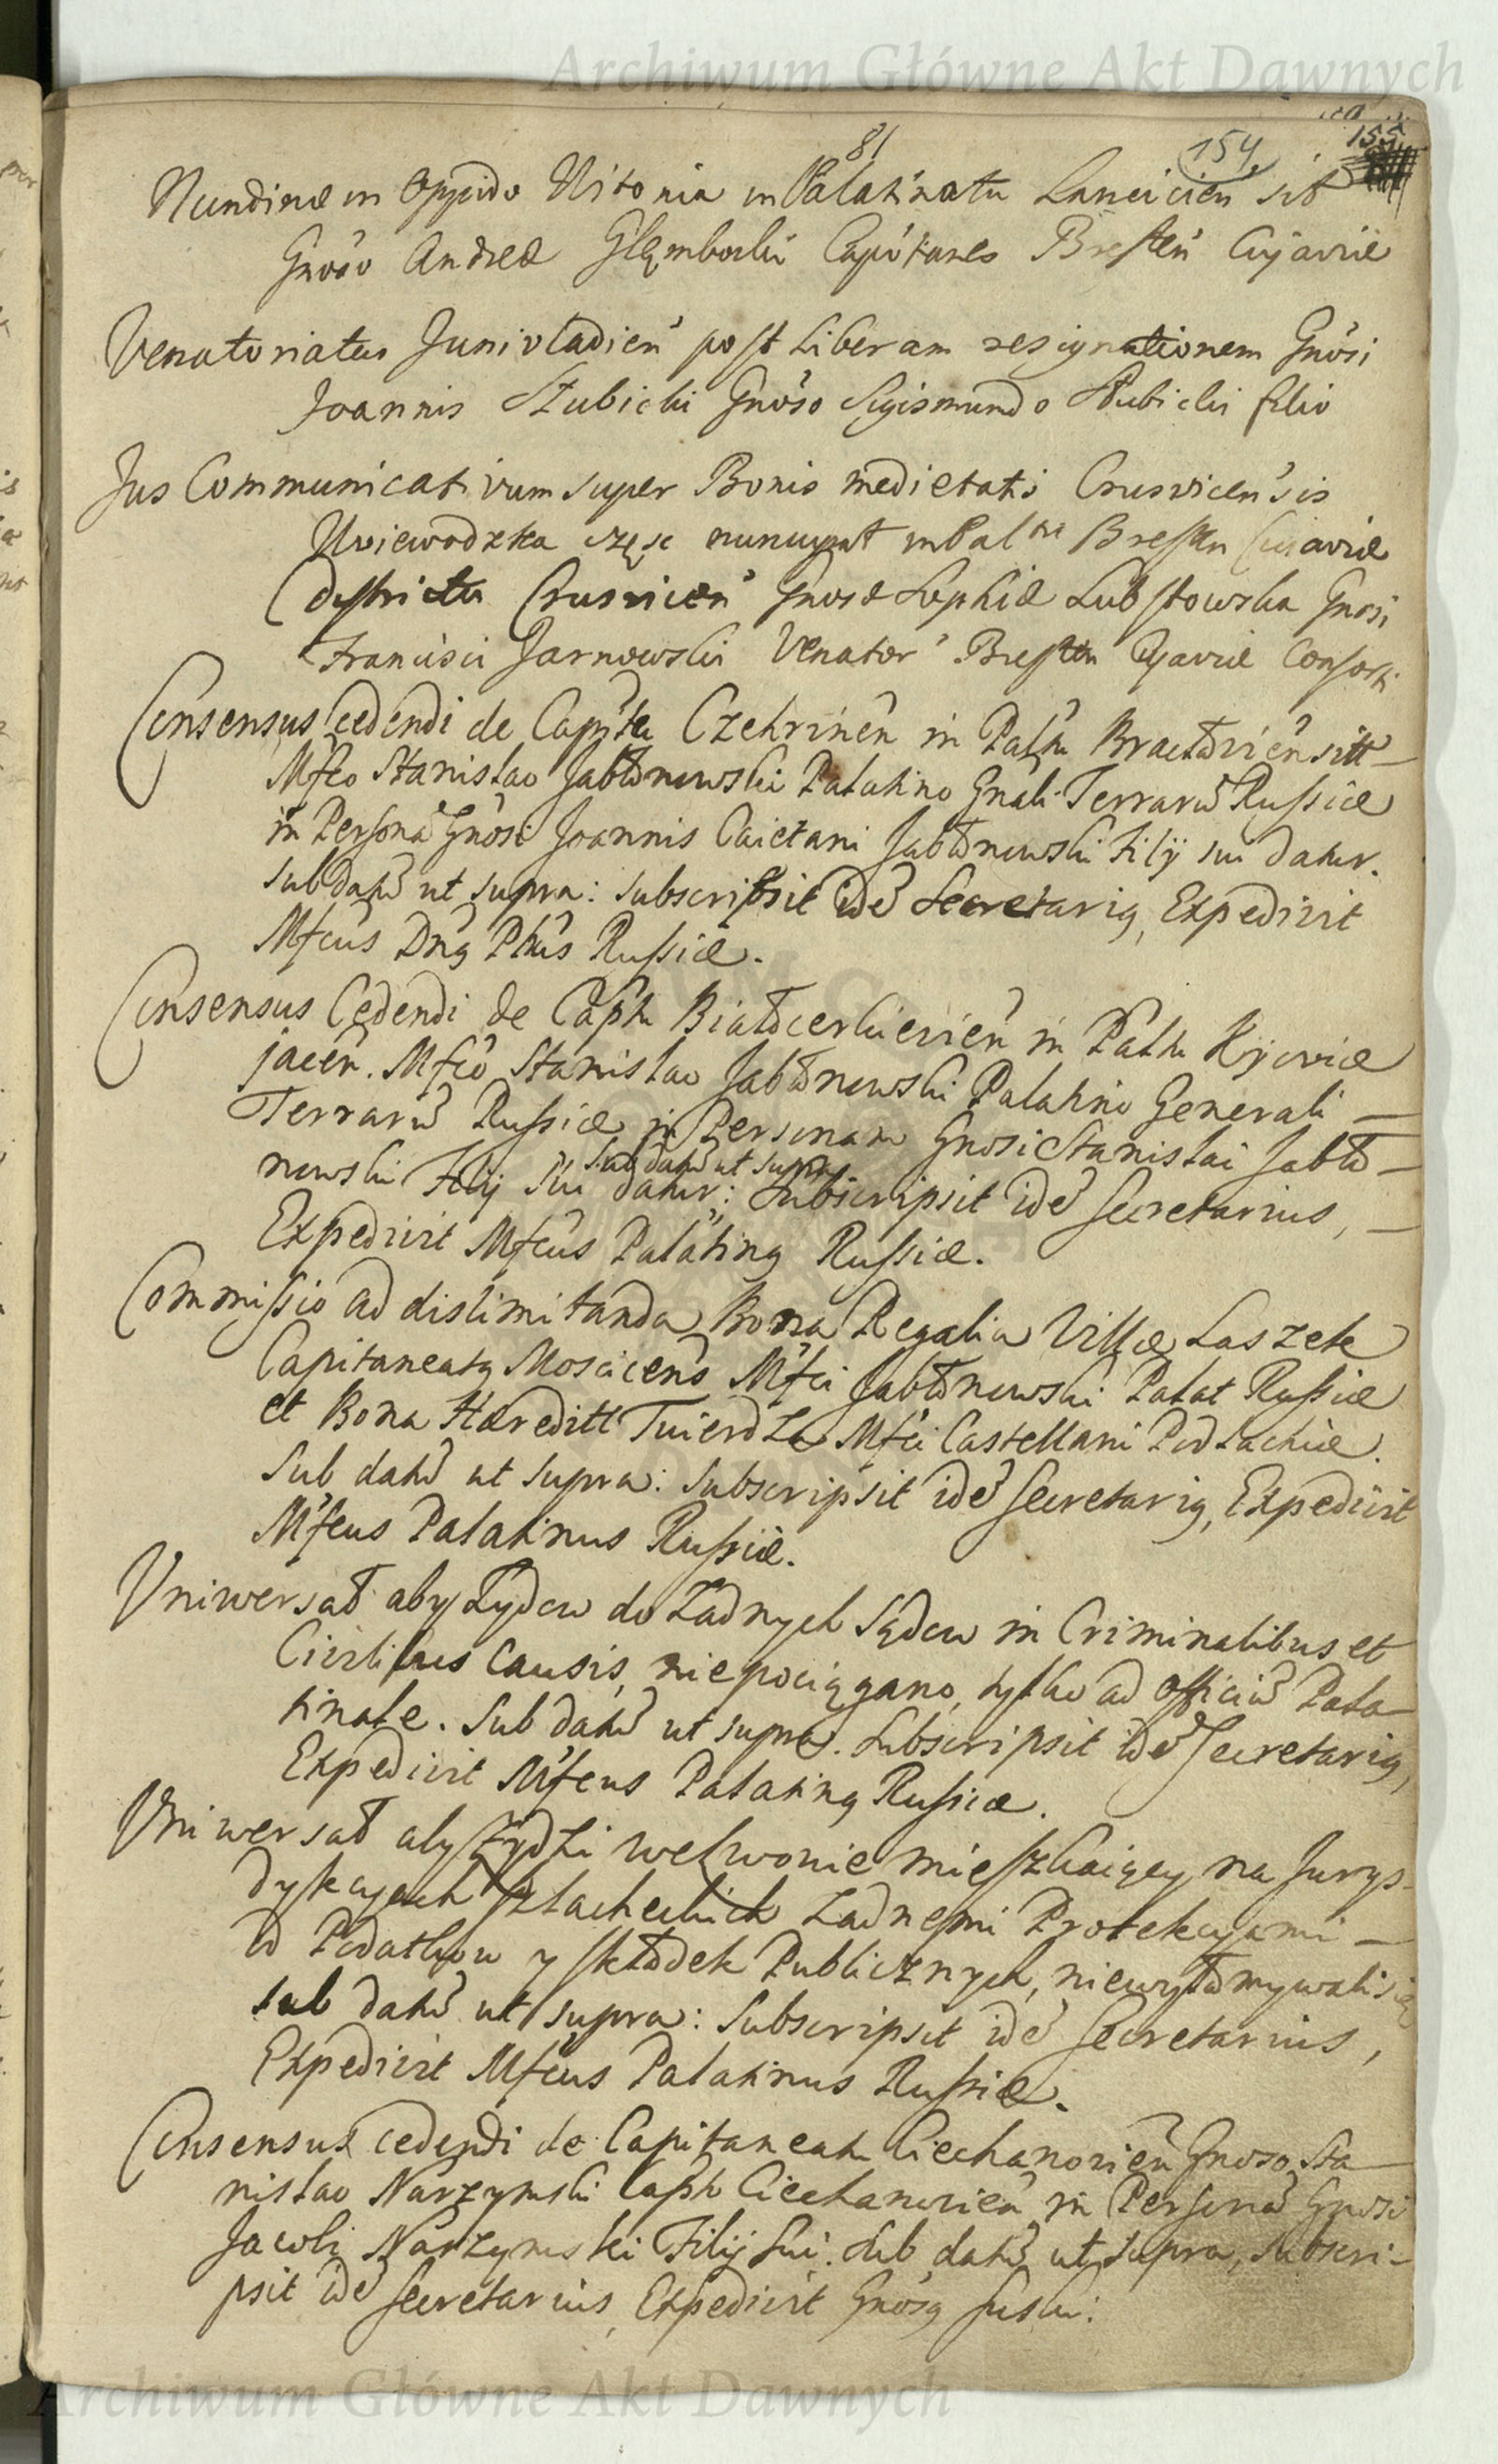 Archiwum Główne Akt Dawnych
81
154
155
Nundinæ in Oppido Uitonia in Palatinatu Lancicień sit
Gnoso Andreæ Głęmbocki Capitaneo Bresteń Cujaviæ
Venatoriatus Junivladień post Liberam resignationem Gnosi
Joannis Słubicki Gnoso Sigismundo Słubicki filio
Jus Communicativum super Bonis medietatis Crusvicensis
Uviewodzka część nuncupat in Paltu Bresten Cuiaviæ
Districtu Crusvicień Gnosæ Sophiæ Lubstowska Gnosi
Francisci Jarnowski Venator Bresten Cyaviæ Consorti
Consensus Cedendi de Capitu Czehrinen in Paltu Bracłavien sitt
Mfco Stanislao Jabłonowski Palatino Gnali Terrarũ Russiæ
in Personã Gnosi Joannis Caietani Jabłonowski Filij sui datur.
sub datũ ut supra: subscripsit idẽ Secretarig, Expedivit
Mfcus Dng Pltus Russiæ.
Consensus Cedendi de Capitu Białocerkievień in Paltu Kijoviæ
jacen. Mfco Stanislao Jabłonowski Palatino Generali
Terrarũ Russiæ in Personam Gnosi Stanislai Jabło-
sub datũ ut supra
nowski Filij sui datur: Subscripsit idẽ Secretarius,
Expedivit Mfcus Palating Russiæ.
Commissio ad dislimitanda Bona Regalia Villæ Laszek
Capitaneatg Moscicens Mfci Jabłonowski Palat Russiæ
et Bona Hæreditt Twierdza Mfci Castellani Podlachiæ.
Sub datũ ut supra: Subscripsit idẽ Secretarig, Expedivit
Mfcus Palatinus Russiæ.
Vniwersał aby Zydow do Zadnych Sądow in Criminalibus et
Civilibus Causis, niepociągano, tylko ad Officiũ Pala
tinale. Sub datũ ut supra. Subscripsit idẽ Secretarig,
Expedivit Mfcus Palating Russiæ.
Vniwersał aby Zydzi we Lwowie mieszkaiący na Jurys-
dykcyach szlacheckich Zadnemi Protekcyami
od Podatkow y składek Publicznych, niewyłamywali się
sub datũ ut supra: Subscripsit idẽ Secretarius,
Expedivit Mfcus Palatinus Russiæ.
Consensus cedendi de Capitaneatu Ciechanovień Gnoso Sta
nislao Narzymski Capto Ciechanovień in Personã Gnosi
Jacobi Narzymski Filij Sui. Sub datũ ut supra, Subscri-
psit idẽ Secretarius, Expedivit Gnosg
Archiwum Główne Akt Dawnych